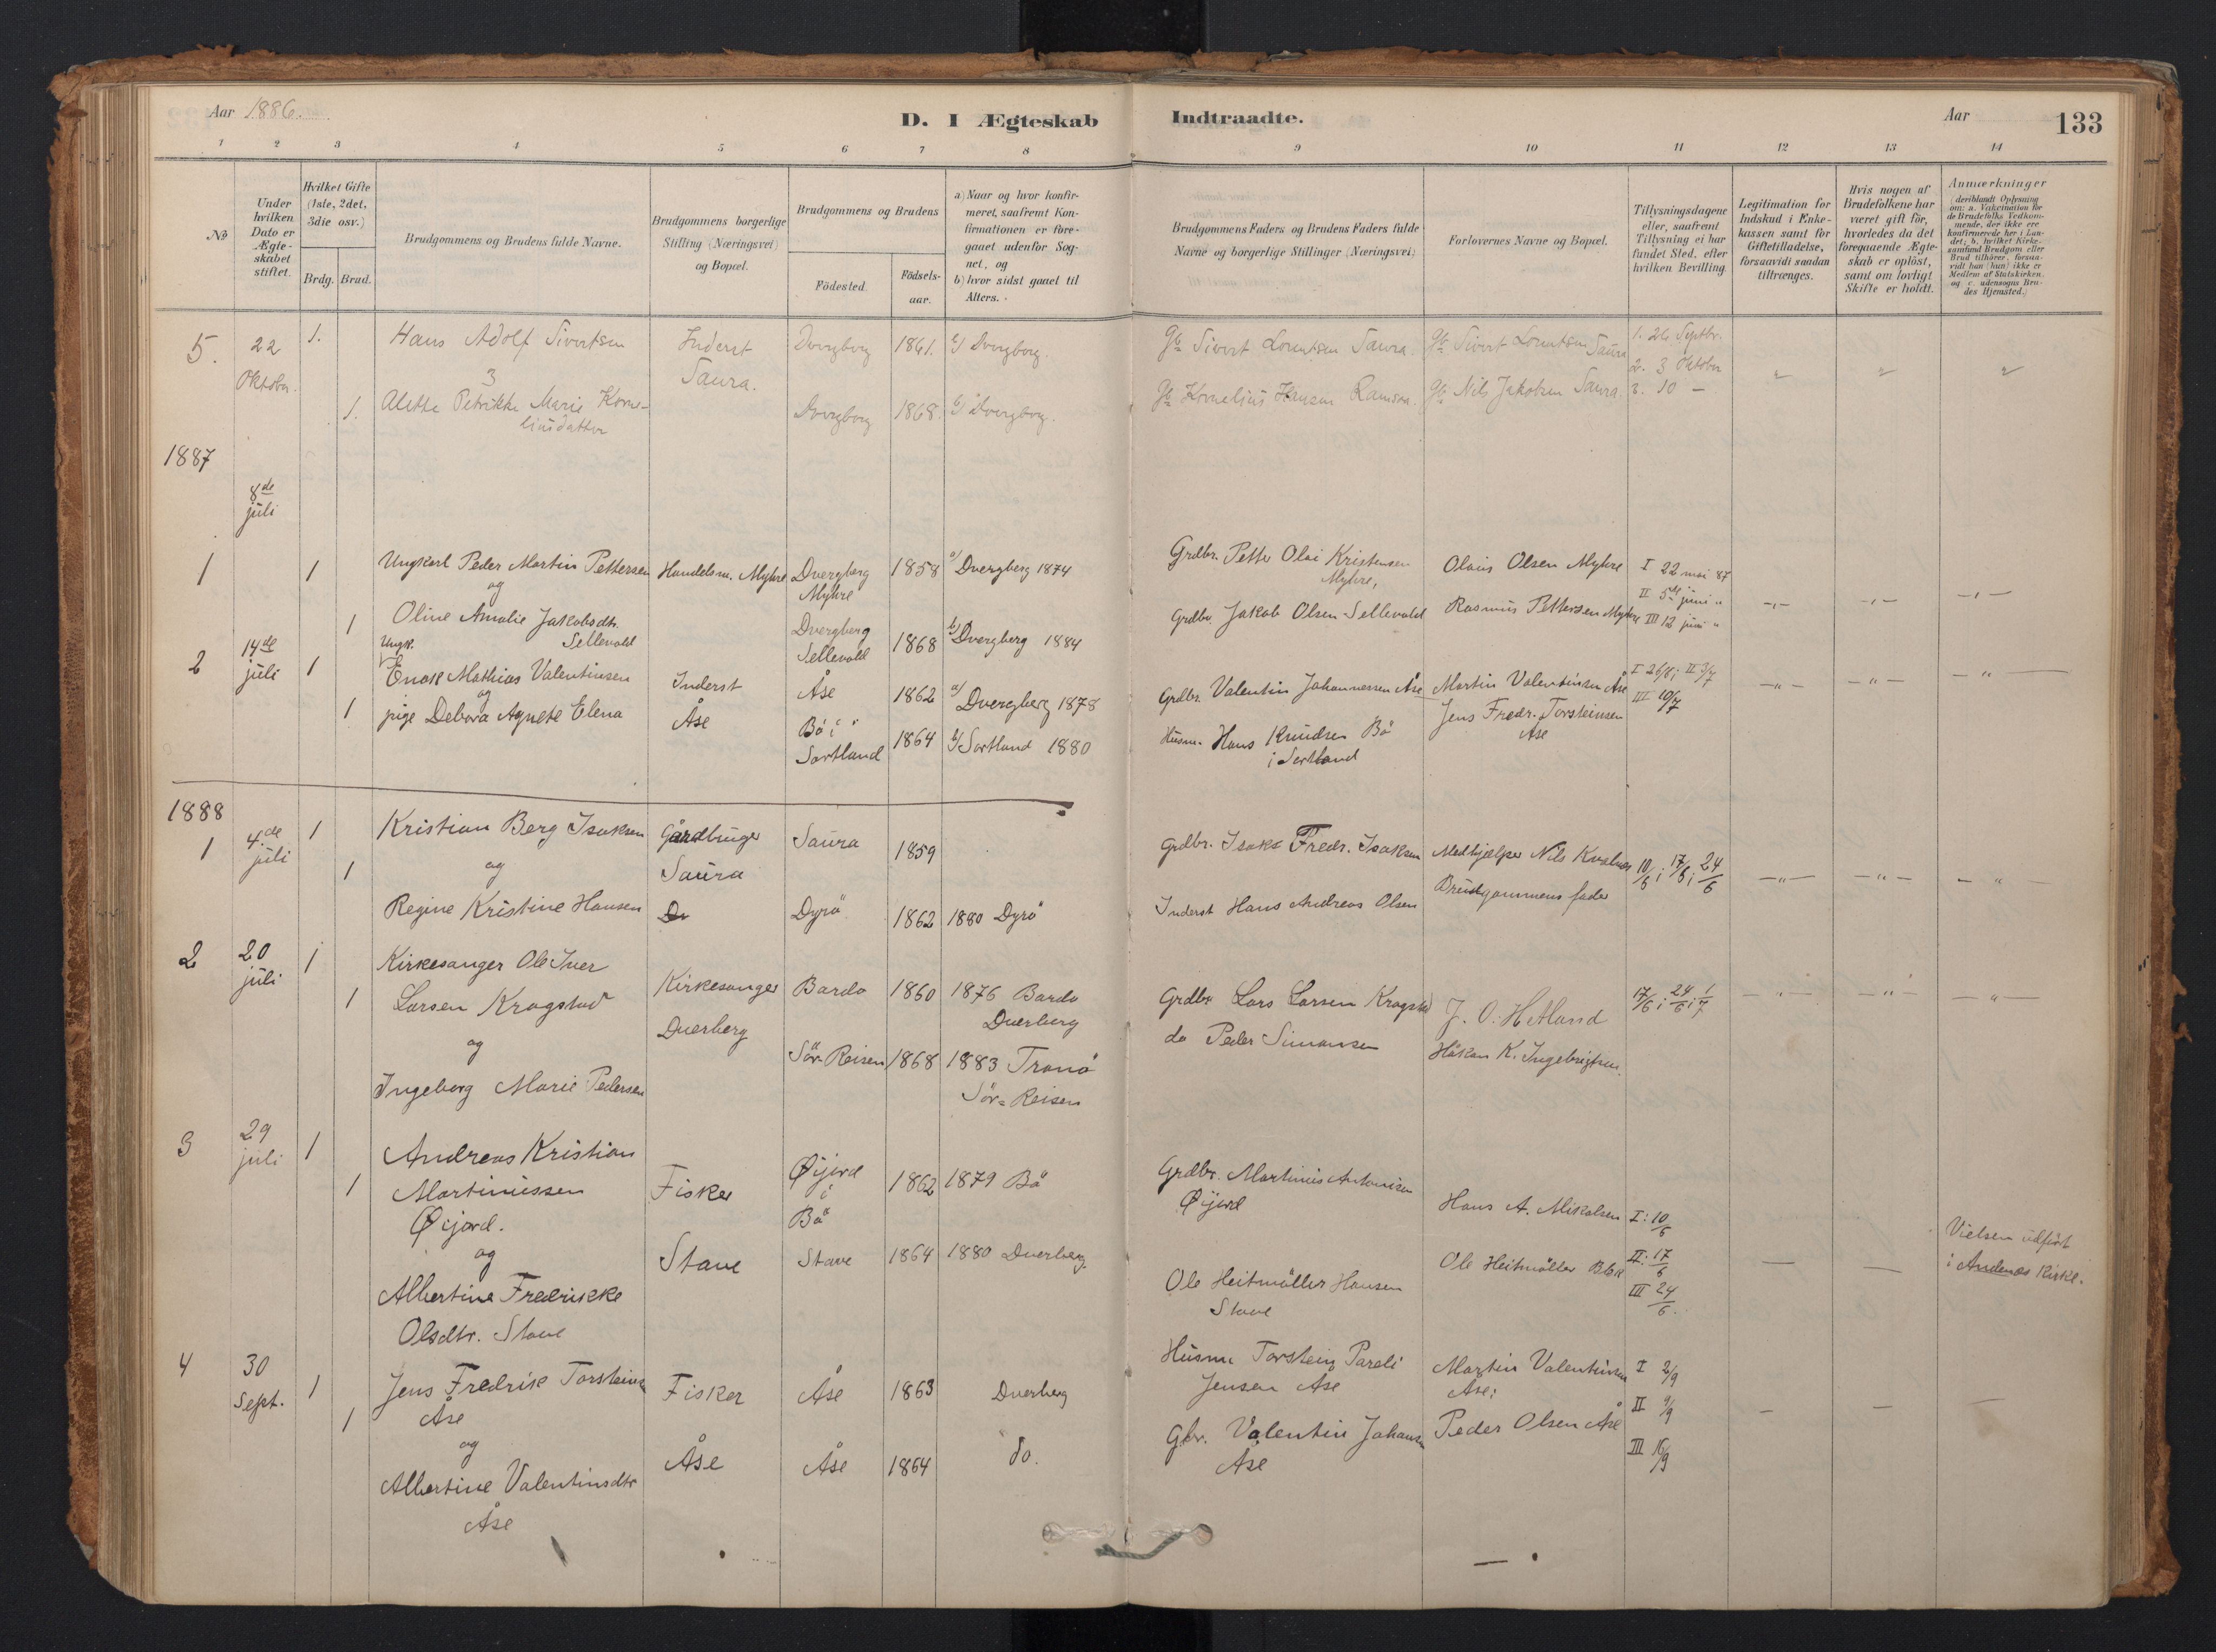 Aar 1886.
D. I Ægteskab Indtraadte.
Aar
133
1 2 3 4 5 6 7 8 9 10 11 12 13 14
No
Under hvilken Dato er Ægteskabet stiftet.
Hvilket Gifte (1ste, 2det, 3die osv.)
Brdg. Brud.
Brudgommens og Brudens fulde Navne.
Brudgommens borgerlige Stilling (Næringsvei) og Bopæl.
Brudgommens og Brudens
Födested.
Födsels-aar.
a) Naar og hvor konfir-
meret, saafremt Kon-
firmationen er fore-
gaaet udenfor Sog-
net, og
b) hvor sidst gaaet til
Alters.
Brudgommens Faders og Brudens Faders fulde
Navne og borgerlige Stillinger (Næringsvei)
Forlovernes Navne og Bopæl.
Tillysningsdagene
eller, saafremt
Tillysning ei har
fundet Sted, efter
hvilken Bevilling.
Legitimation for
Indskud i Enke-
kassen samt for
Giftetilladelse,
forsaavidt saadan
tiltrænges.
Hvis nogen af
Brudefolkene har
været gift för,
hvorledes da det
foregaaende Ægte-
skab er oplöst,
samt om lovligt
Skifte er holdt.
Anmærkninger
(deriblandt Oplysning
om: a. Vakcination for
de Brudefolks Vedkom-
mende, der ikke ere
konfirmerede her i Lan-
det; b. hvilket Kirke-
samfund Brudgom eller
Brud tilhører, forsaa-
vidt han (hun) ikke er
Medlem af Statskirken,
og c. udensogns Bru-
des Hjemsted.)
5. 22 Oktober. 1. Hans Adolf Sivertsen Inderst Saura. Dvergberg 1861. a/ Dvergberg. Gb Sivert Lorntsen Saura. Gb Sivert Lorntsen Saura 1. 26 Septbr.
2. 3 Oktober
1. Alette Petrikke Marie Korne-
liusdatter Dvergberg 1868. b/ Dvergberg. Gb Kornelius Hansen Ramsaa. Gb Nils Jakobsen Saura. 3. 10 —
1887
8de juli
1 1 Ungkarl Peder Martin Pettersen Handelsm. Myhre Dvergberg Myhre 1858 a/ Dvergberg 1874 Grdbr. Petter Olai Kristensen Myhre, Olaus Olsen Myhre I 22 mai 87
og II 5te juni "
1 Oline Amalie Jakobsdtr. Sellevold Dvergberg Sellevold 1868 b/ Dvergberg 1884 Grdbr. Jakob Olsen Sellevold Rasmus Pettersen Myhre III 12 juni "
2 14de juli 1 Ungk. Enok Mathias Valentinsen Inderst Åse 1862 a/ Dvergberg 1878 Grdbr. Valentin Johannessen Åse Martin Valentinsen Åse I 26/6; II 3/7
og
1 pige Debora Agnete Elena Åse Bö i Sortland 1864 b/ Sortland 1880 Husm. Hans Knudsen Bö i Sortland Jens Fredr. Torsteinsen Åse III 10/7
1888
1 4.de juli 1 Kristian Berg Isaksen Gårdbruger Saura Saura 1859 Grdbr. Isaks Fredr. Isaksen Medhjælper Nils Kvalnes 10/6; 17/6; 24/6
og
1 Regine Kristine Hansen Dyrö 1862 1880 Dyrö Inderst Hans Andreas Olsen Brudgommens fader
2 20 juli 1 Kirkesanger Ole Iver
1 Larsen Kragstad Kirkesanger Duerberg Bardo 1860 1876 Bardo Duerberg Grdbr Lars Larsen Kragstad J. O. Hetland 17/6; 24/6; 1/7
og
Ingeborg Marie Pedersen Sör-Reisen 1868 1883 Tranö Sör-Reisen do Peder Simonsen Håkon K. Ingebrigtsen.
3 29 juli 1 Andreas Kristian
1 Martinussen Fisker Øijord i Bö 1862 1879 Bö Grdbr. Martinus Antonisen Øijord Hans A. Mikalsen I: 10/6
Øijord.
og
Albertine Fredrikke Stave Stave 1864 1880 Duerberg. Ole Heitmöller Hansen Stave Ole Heitmöller II: 17/6
III 24/6.
Vielsen udfört
i Andenes Kirke.
Olsdtr. Stave
4 30 Sept. 1 Jens Fredrik Torsteinsen Fisker Åse 1863 Duerberg Husm Torstein Pareli Jensen Åse Martin Valentinsen Åse; I 2/9
1 Åse II 9/9
og
Albertine Valentinsdtr Åse Åse 1864 do. Gbr. Valentin Johansen Åse Peder Olsen Åse III 16/9
Åse